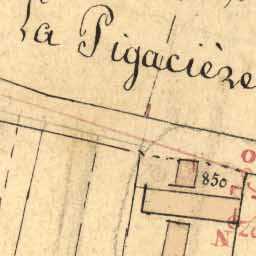 La Pigacièze
O
850
N